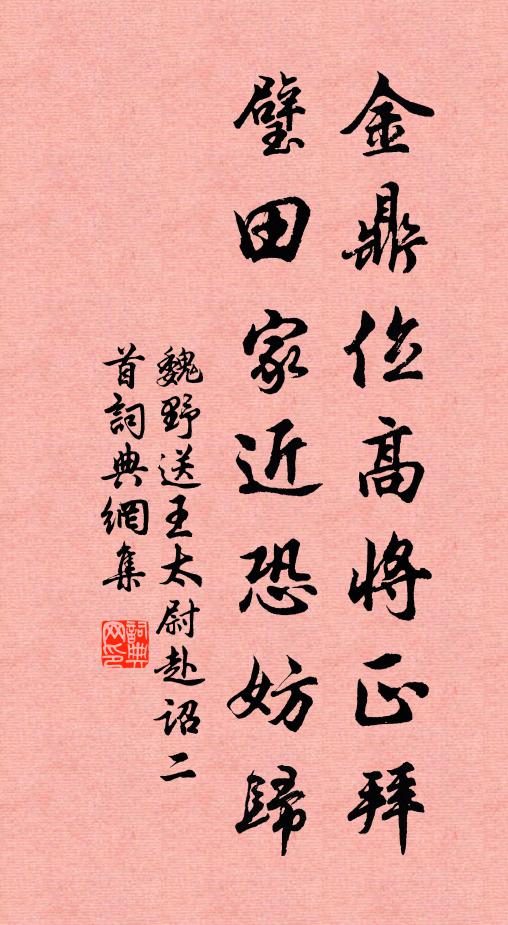 金鼎位高將正拜
璧田家近恐妨歸
魏野送王太尉赴詔二
首詞典網集
詞典
网印